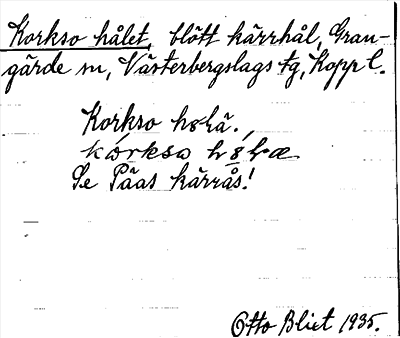 Korkso hålet, blött kärrhål, Gran-
gärde sn, Västerbergslags tg, Kopp l.
Korkso họlä.
kórksω
Se Pääs kärrås!
Otto Blixt 1935.